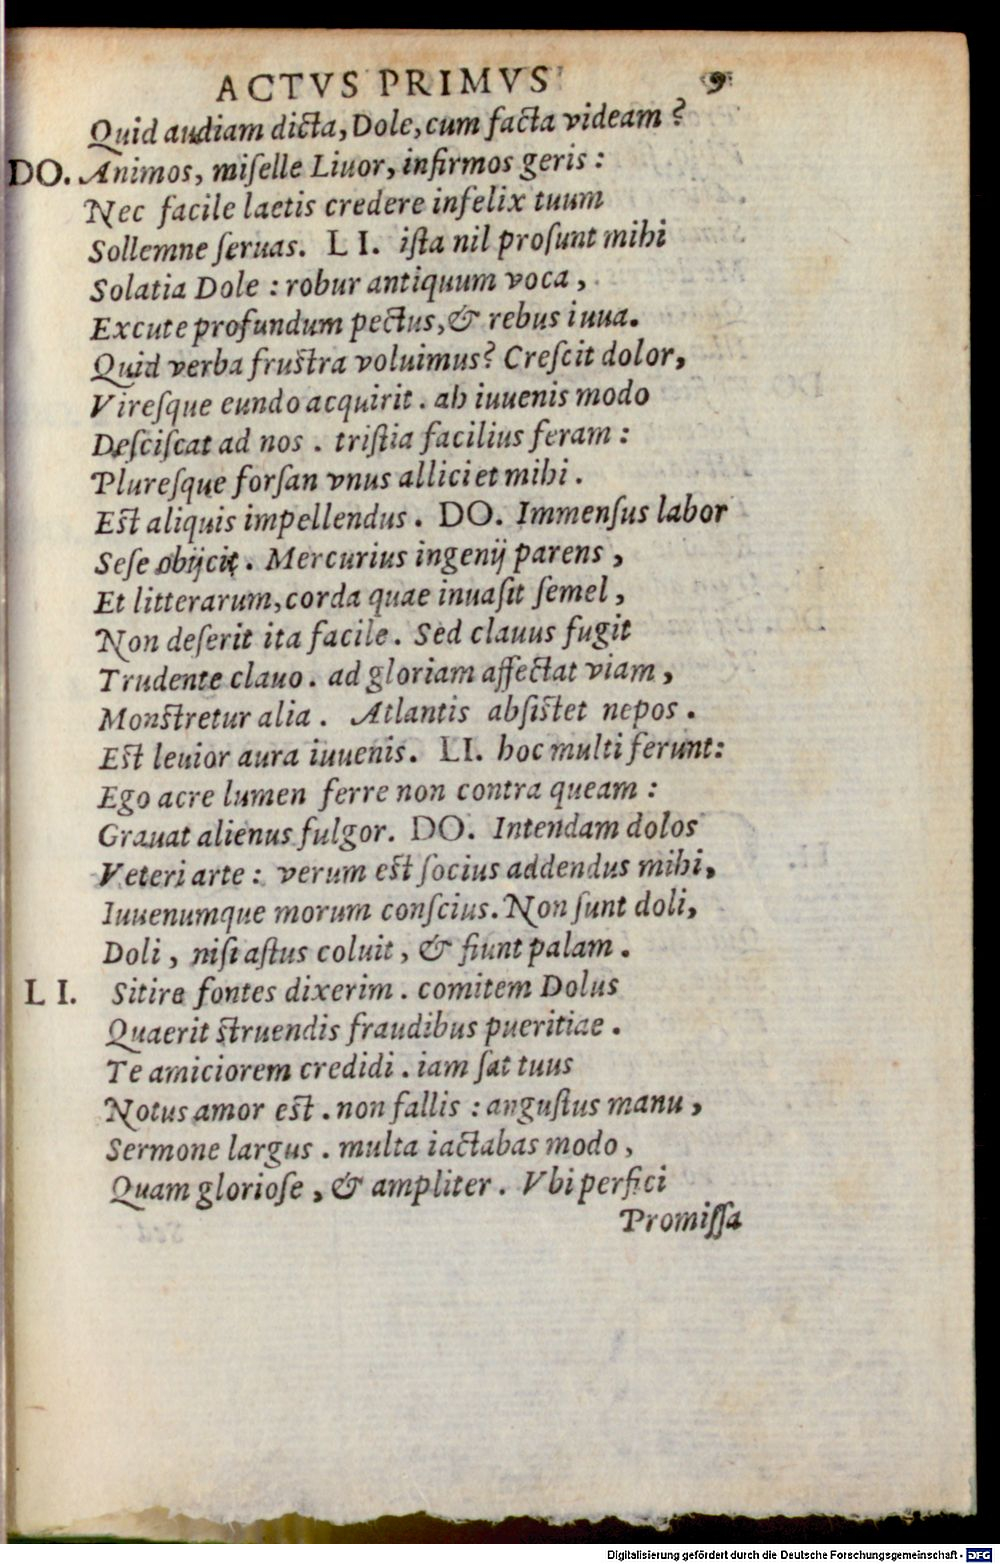 ACTVS PRIMVS 9
Quid audiam dicta, Dole, cum facta videam?
DO. Animos, miſelle Liuor, infirmos geris:
Nec facile laetis credere infelix tuum
Sollemne ſeruas. LI. iſta nil proſunt mihi
Solatia Dole: robur antiquum voca,
Excute profundum pectus, & rebus iuua.
Quid verba fruſtra voluimus? Creſcit dolor,
Vireſque eundo acquirit. ab iuuenis modo
Deſciſcat ad nos. triſtia facilius feram:
Plureſque forſan vnus alliciet mihi.
Eſt aliquis impellendus. DO. Immenſus labor
Seſe obijcit. Mercurius ingenij parens,
Et litterarum, corda quae inuaſit ſemel,
Non deſerit ita facile. Sed clauus fugit
Trudente clauo. ad gloriam affectat viam,
Monſtretur alia. Atlantis abſiſtet nepos.
Eſt leuior aura iuuenis. LI. hoc multi ferunt:
Ego acre lumen ferre non contra queam:
Grauat alienus fulgor. DO. Intendam dolos
Veteri arte: verum eſt ſocius addendus mihi,
Iuuenumque morum conſcius. Non ſunt doli,
Doli, niſi aſtus coluit, & fiunt palam.
LI. Sitire fontes dixerim. comitem Dolus
Quaerit ſtruendis fraudibus pueritiae.
Te amiciorem credidi. iam ſat tuus
Notus amor eſt. non fallis: anguſtus manu,
Sermone largus. multa iactabas modo,
Quam glorioſe, & ampliter. Vbi perfici
Promiſſa
Digitalisierung gefördert durch die Deutsche Forschungsgemeinschaft - DFG